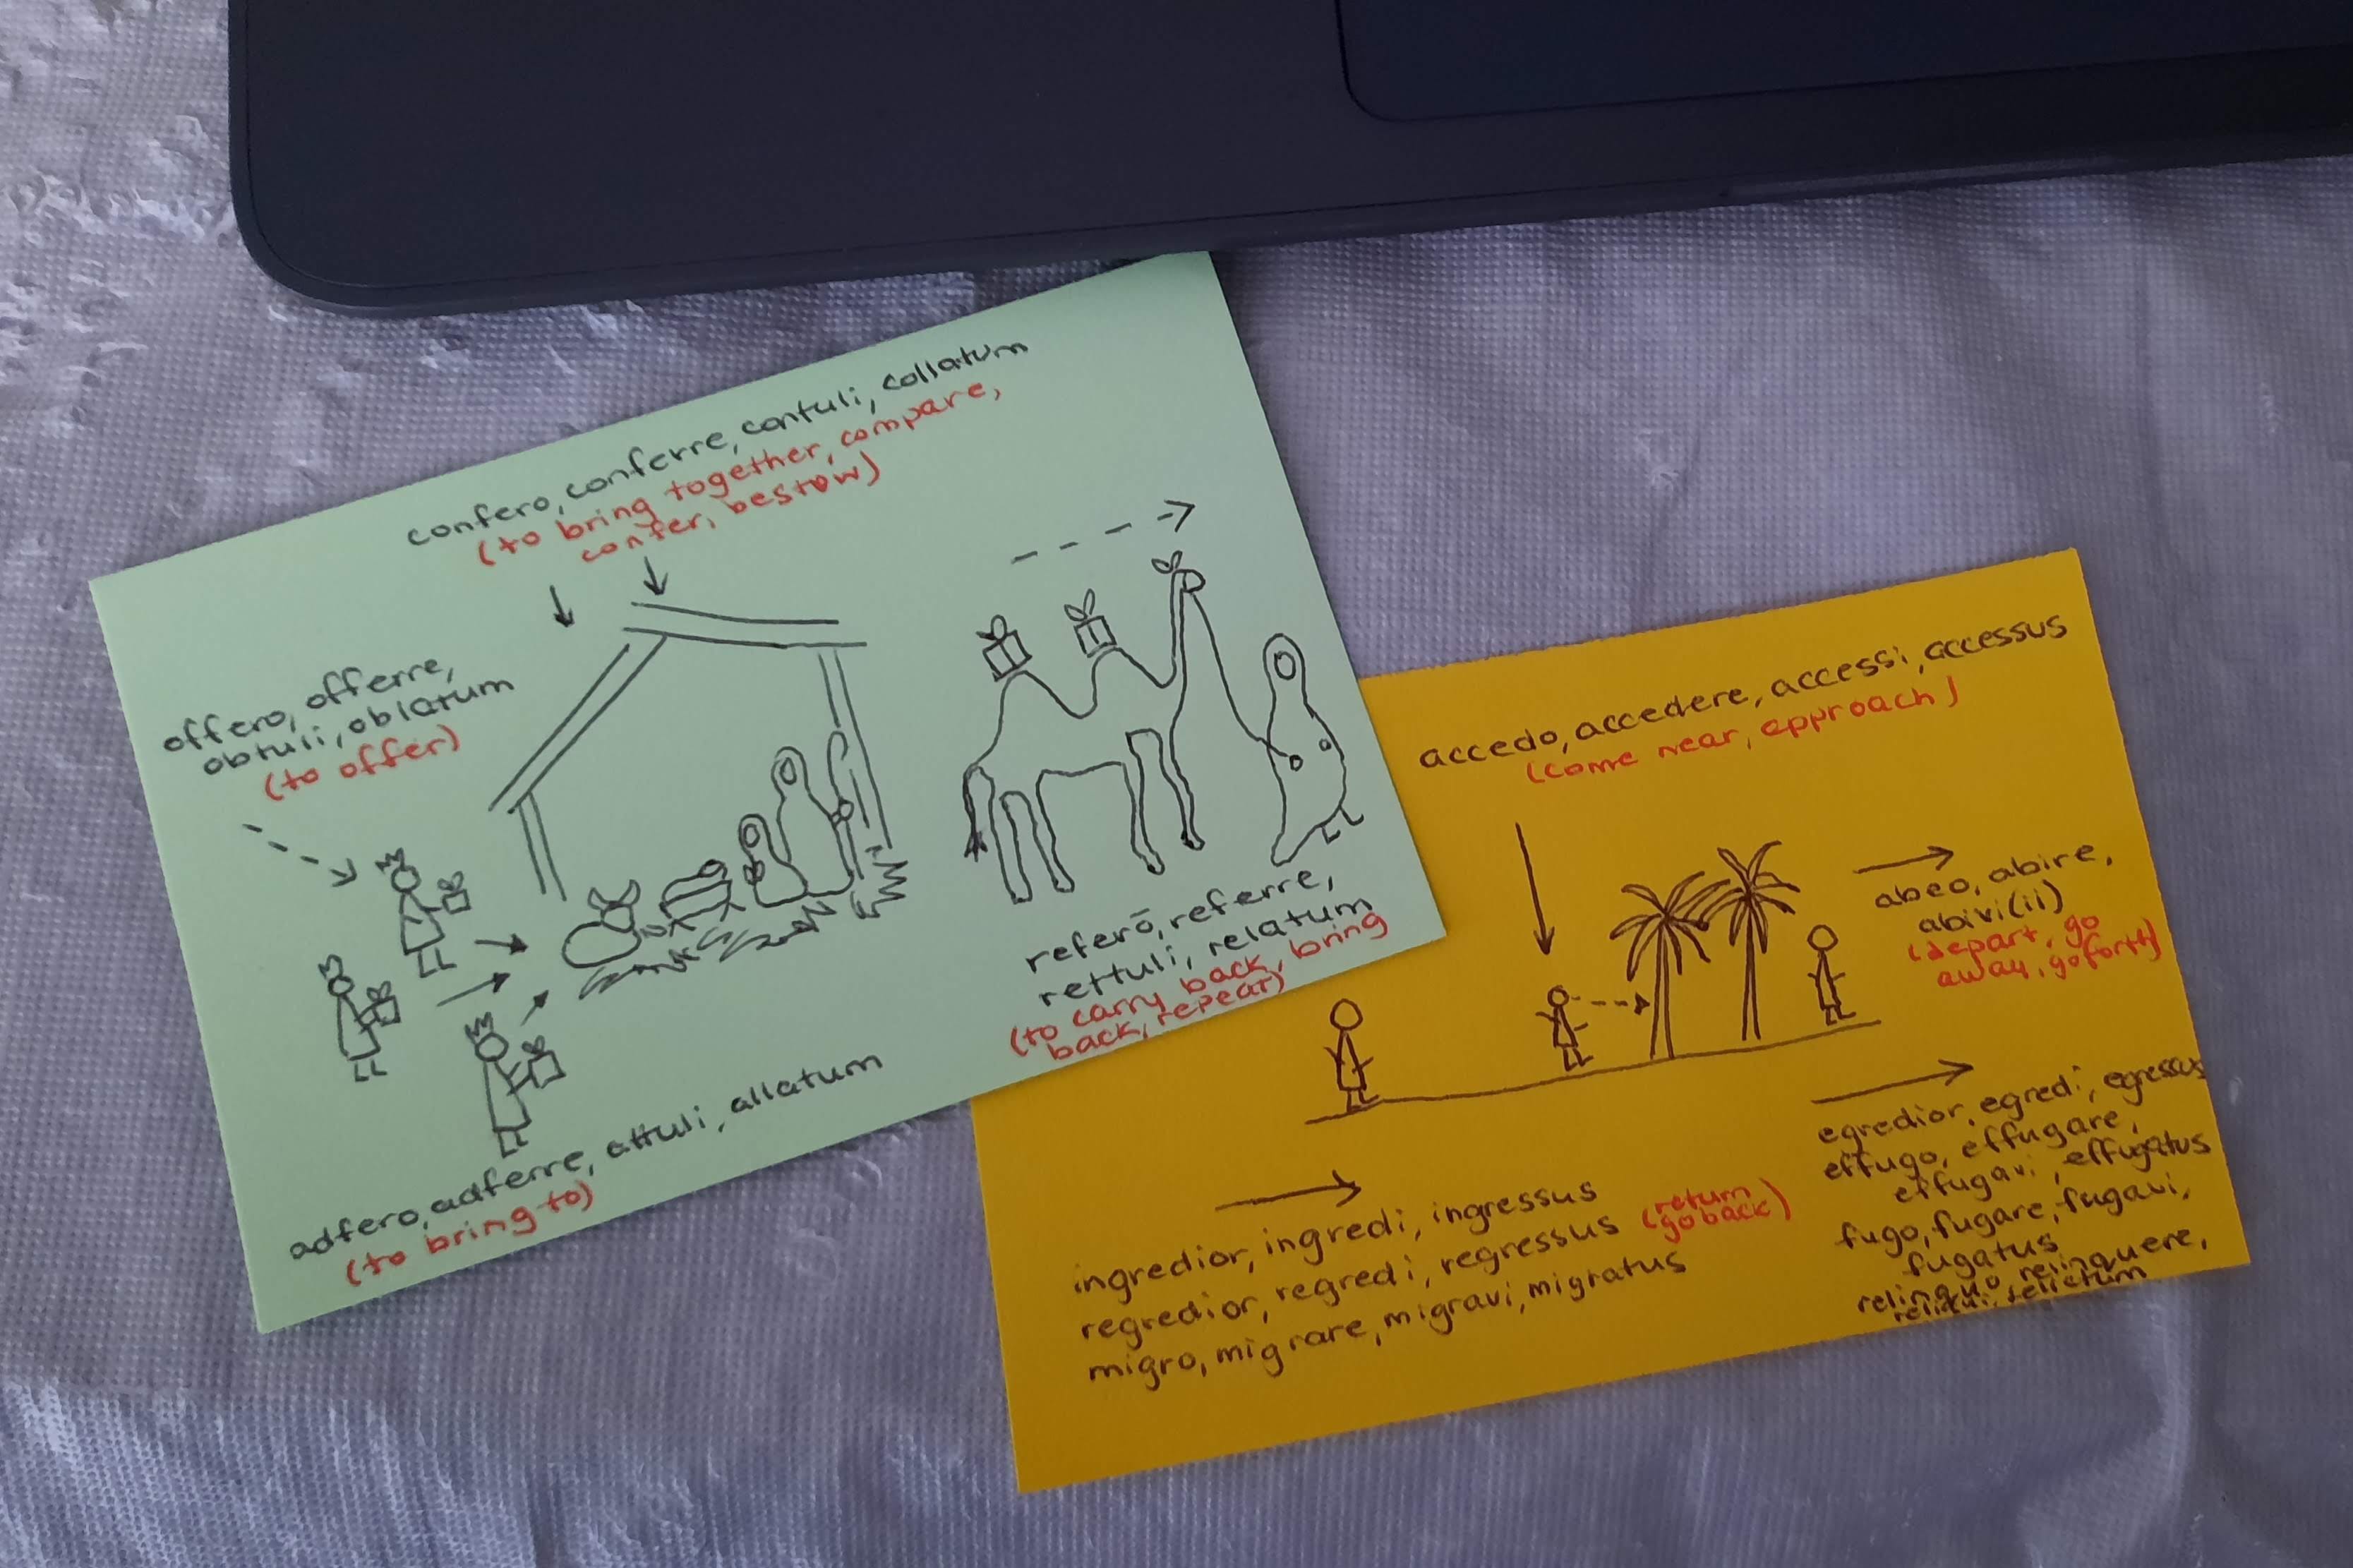 confero, conferre, contuli, collatum
(to bring together, compare,
confer, bestow)
offero, offerre,
obtuli, oblatum
(to offer)
referō, referre,
rettuli, relatum
(to carry back, bring
back, repeat)
adfero, adferre, attuli, allatum
(to bring to)
accedo, accedere, accessi, accessus
(come near, approach)
abeo, abire,
abivi(ii)
(depart, go
away, go forth)
ingredior, ingredi, ingressus
regredior, regredi, regressus (return
go back)
migro, migrare, migravi, migratus
egredior, egredi, egressus
effugo, effugare,
effugavi, effugatus
fugo, fugare, fugavi,
fugatus
relinquo, relinquere,
relictum